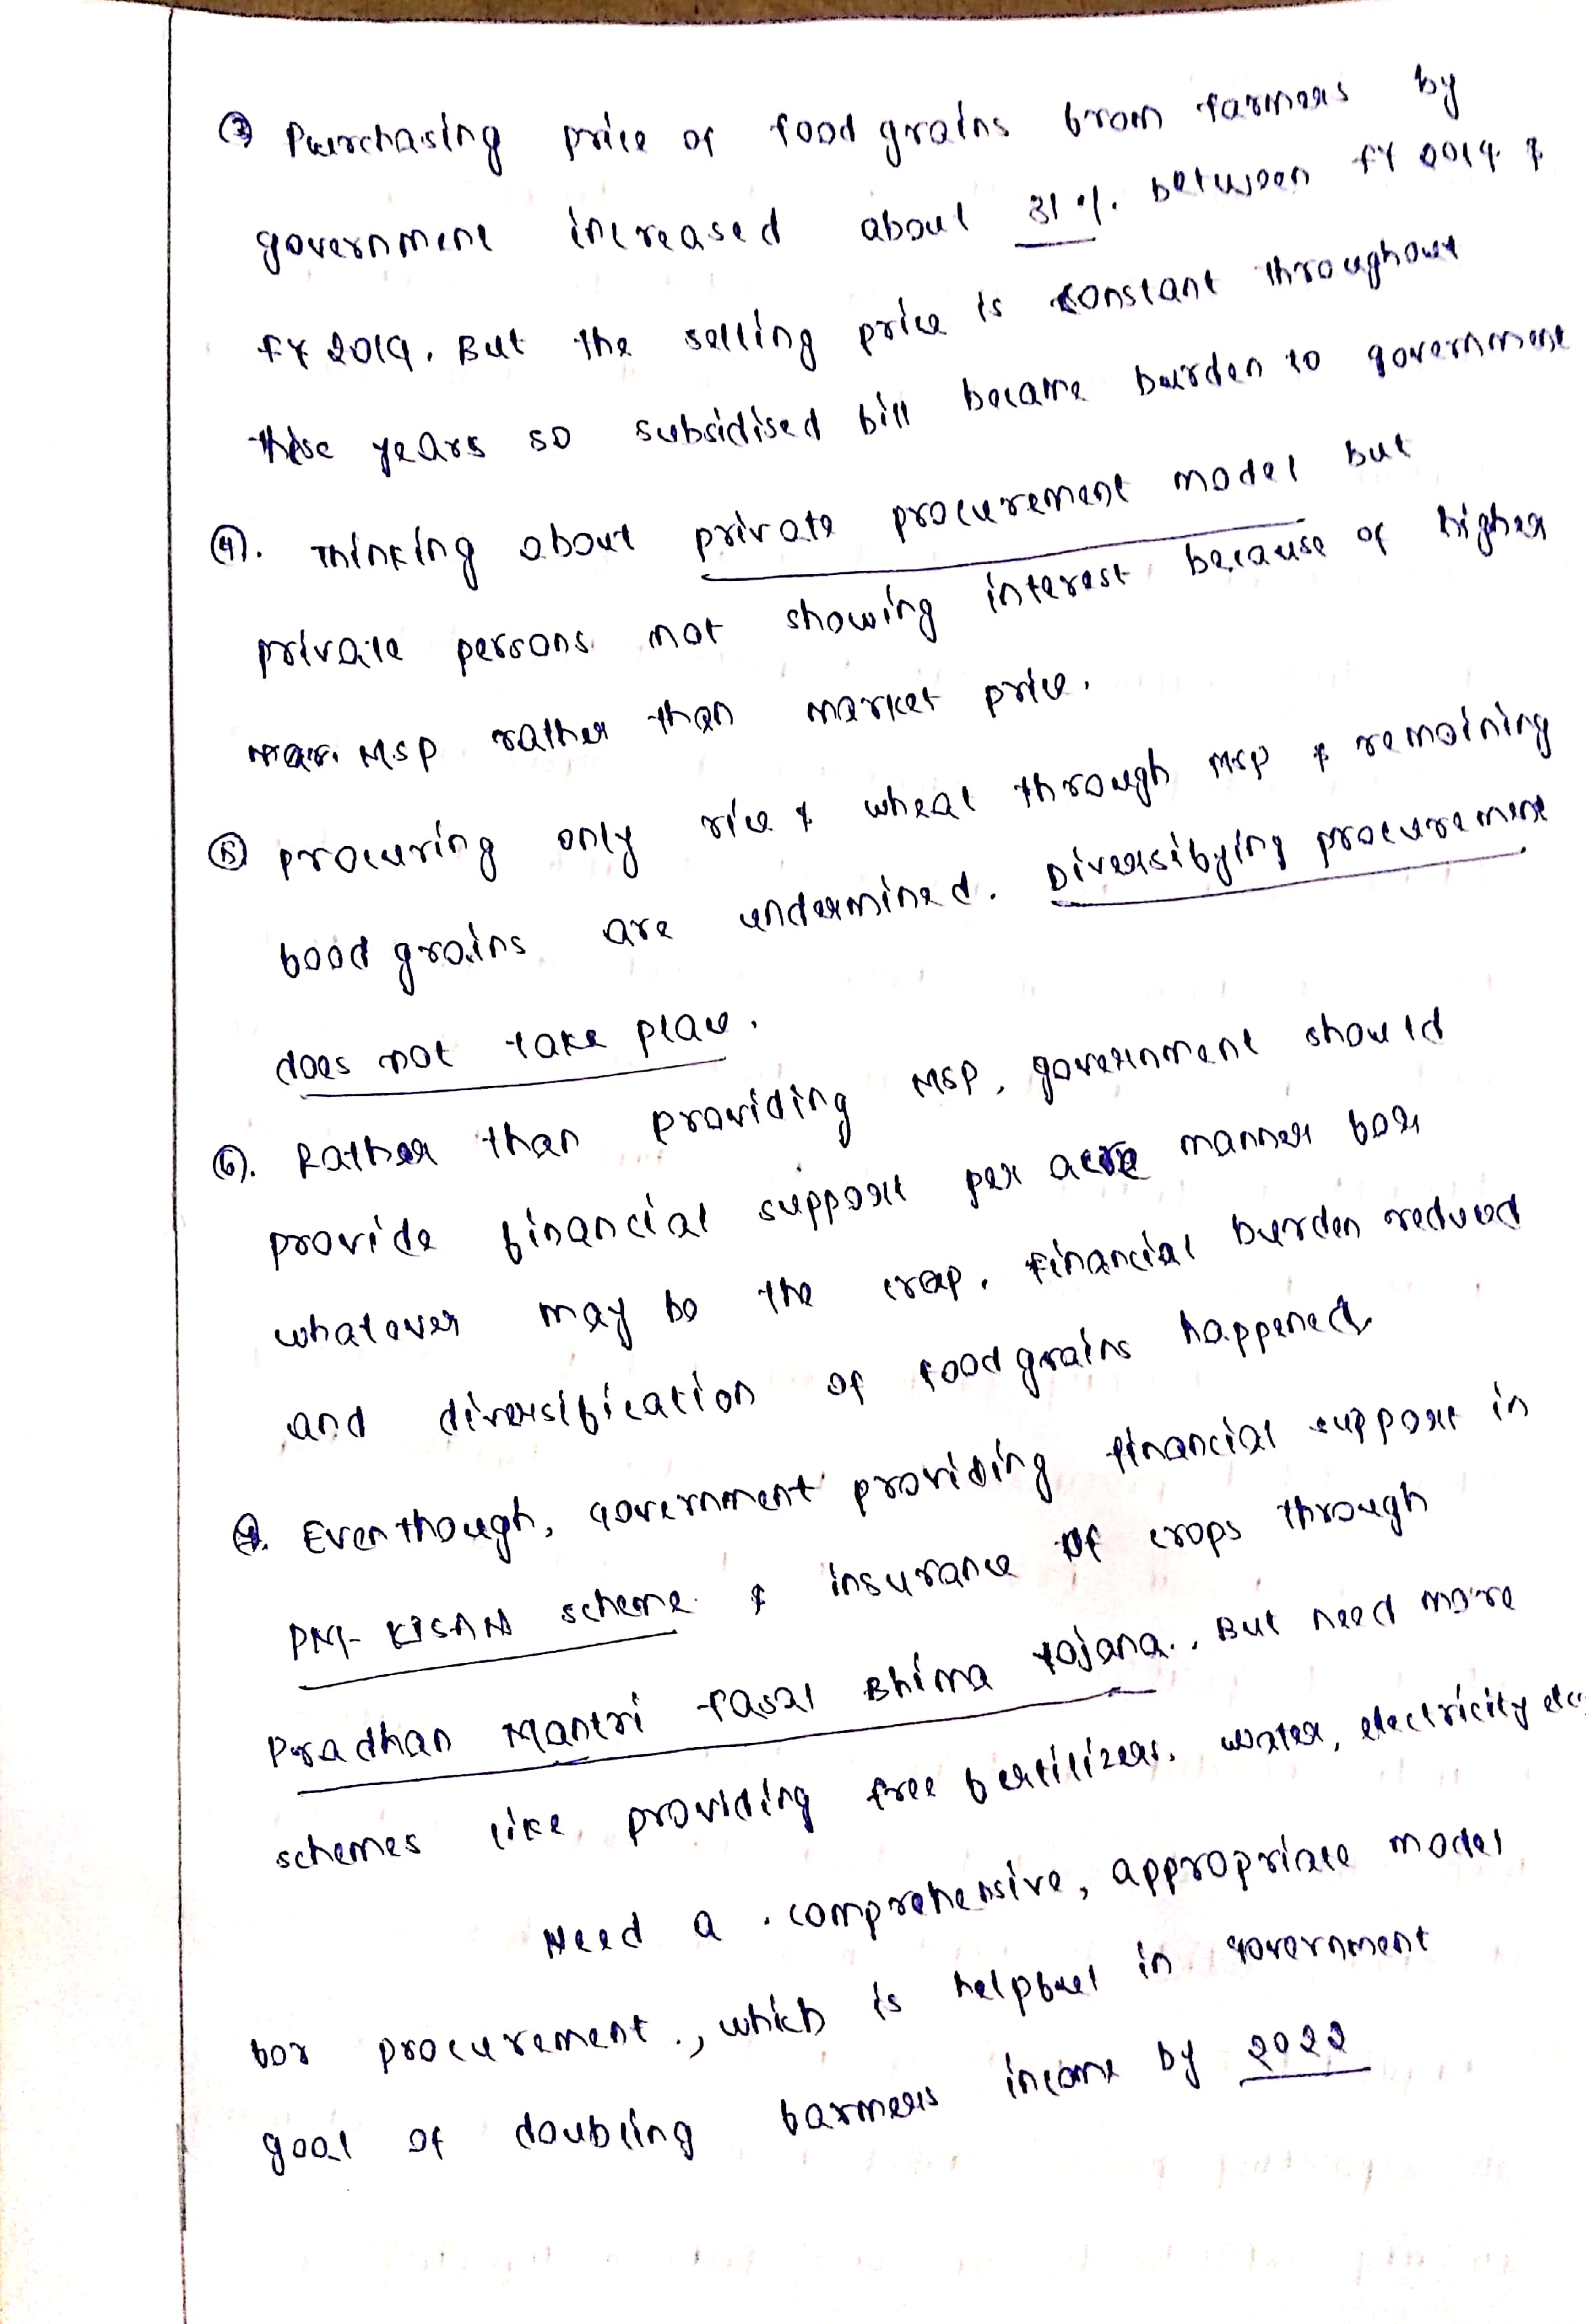 ③ Purchasing price of food grains from farmers by
government increased about 31%. between FY 2014 &
FY 2019. But the selling price is constant throughout
these years so subsidised bill became burden to government
④. Thinking about private procurement model but
private persons not showing interest because of higher
MSP rather than market price.
⑤ procuring only rice & wheat through MSP & remaining
food grains are undermined. Diversifying procurement
does not take place.
⑥. Rather than providing MSP, government should
provide financial support per acre manner for
whatever may be the crop. Financial burden reduced
and diversification of food grains happened.
Eventhough, government providing financial support in
PM-KISAN scheme & insurance of crops through
Pradhan Mantri Fasal Bhima Yojana., But need more
schemes like providing free fertilizers, water, electricity etc.
Need a comprehensive, appropriate model
for procurement., which is helpful in government
goal of doubling farmers income by 2022